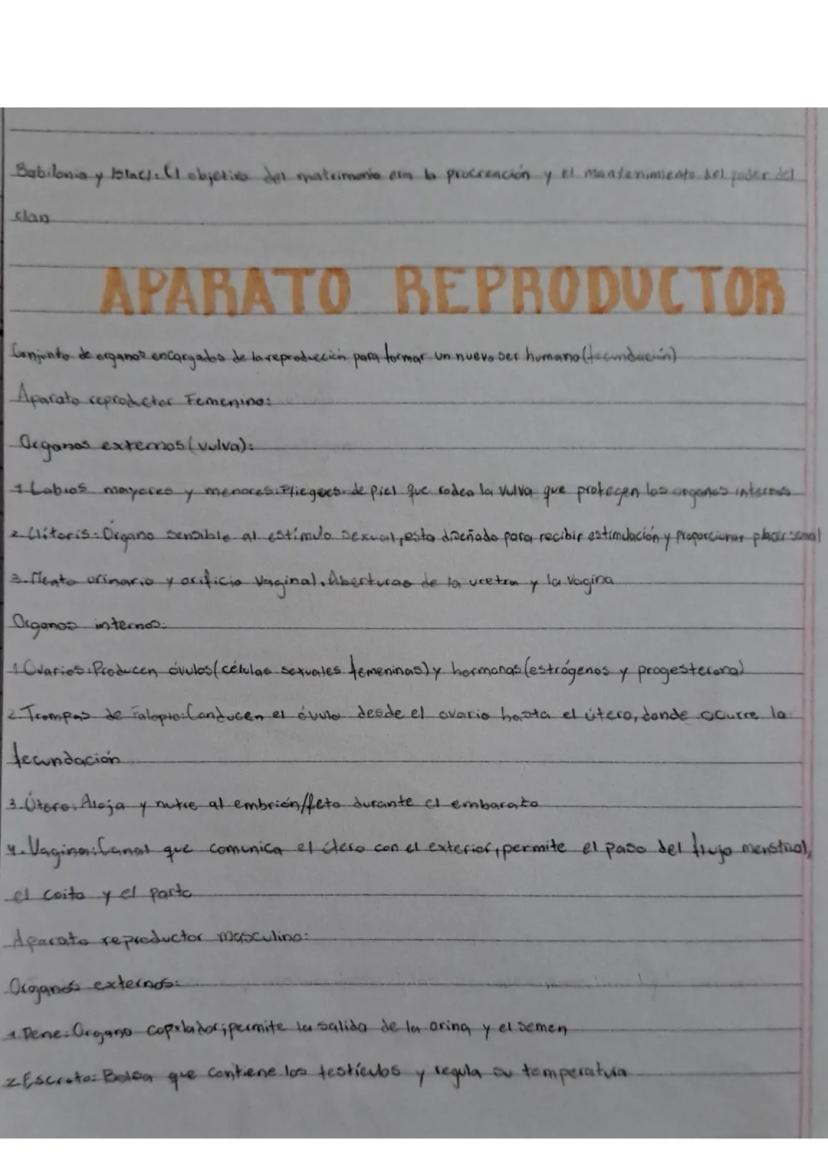 Babilonia y : El objetivo del matrimonio era la procreación y el mantenimiento del poder del
clan
APARATO REPRODUCTOR
Conjunto de organos encargados de la reproducción para formar un nuevo ser humano (fecundación)
Aparato reproductor Femenino:
Organos externos (vulva):
1. Labios mayores y menores: Pliegues de piel que rodea la vulva que protegen los organos internos
2. Clitoris: Organo sensible al estímulo sexual, esta diseñado para recibir estimulación y proporcionar placer sexual
3. Meato urinario y orificio Vaginal. Aberturas de la uretra y la vagina
Organos internos:
1. Ovarios: Producen óvulos (células sexuales femeninas) y hormonas (estrógenos y progesterona)
2. Trompas de Falopio: Conducen el óvulo desde el ovario hasta el útero, donde ocurre la
fecundación
3. Útero: Aloja y nutre al embrión/feto durante el embarato
4. Vagina: Canal que comunica el útero con el exterior, permite el paso del flujo menstrual,
el coito y el parto
Aparato reproductor masculino:
Organos externos:
1. Pene: Organo copulador; permite la salida de la orina y el semen
2 Escroto: Bolsa que contiene los testículos y regula su temperatura